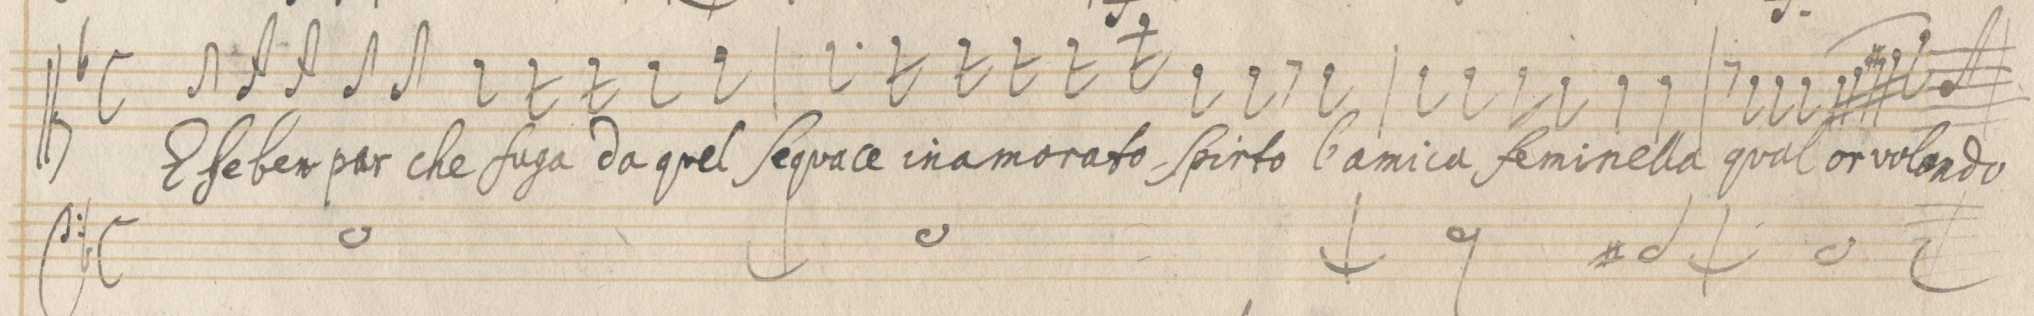 E se ben par che fuga da quel sequace inamorato spirto l'amica feminella qual or volando